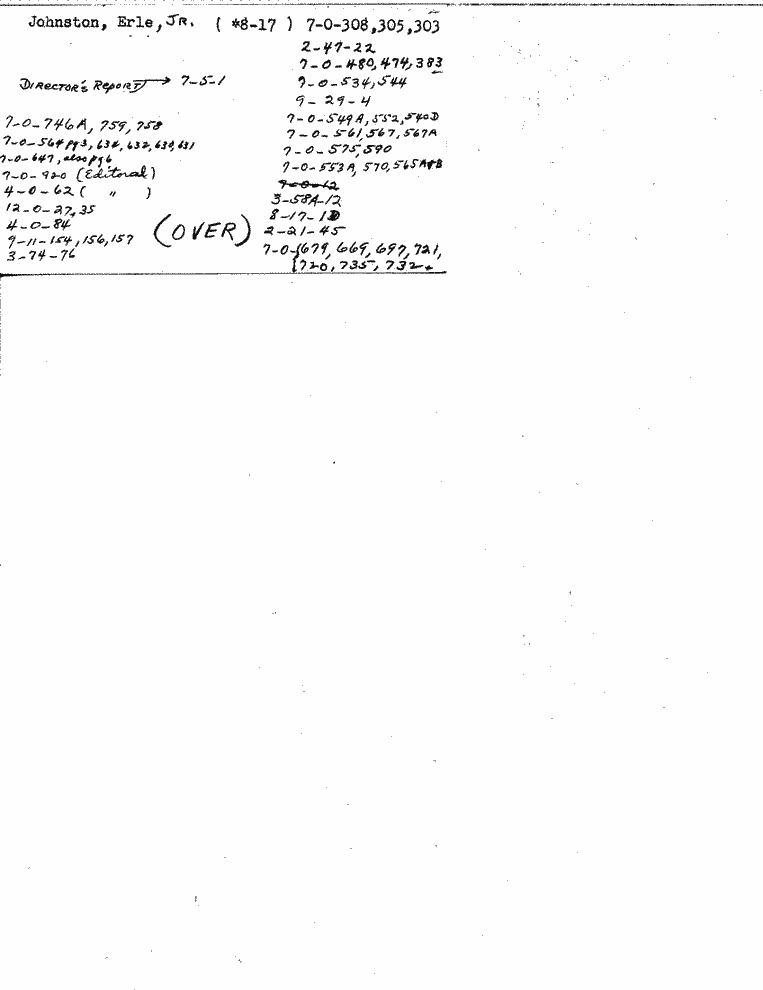 Johnston, Erle, JR. ( *8-17 ) 7-0-308,305,303
2-47-22
7-0-480,474,383
DIRECTOR'S REPORT → 7-5-1
9-0-534,544
9-29-4
7-0-746A, 759, 758
7-0-549A, 552, 540D
7-0-564 pg3, 634, 632, 630, 631
7-0-561, 567, 567A
7-0-647, also pg6
7-0-575, 590
7-0-920 (Editorial)
7-0-553A, 570, 565A+B
4-0-62 ( " )
7-0-12
12-0-27, 35
3-58A-12
4-0-84
8-17-1D
9-11-154, 156, 157
(OVER)
2-21-45
3-74-76
7-0-679, 669, 697, 721,
720, 735, 732